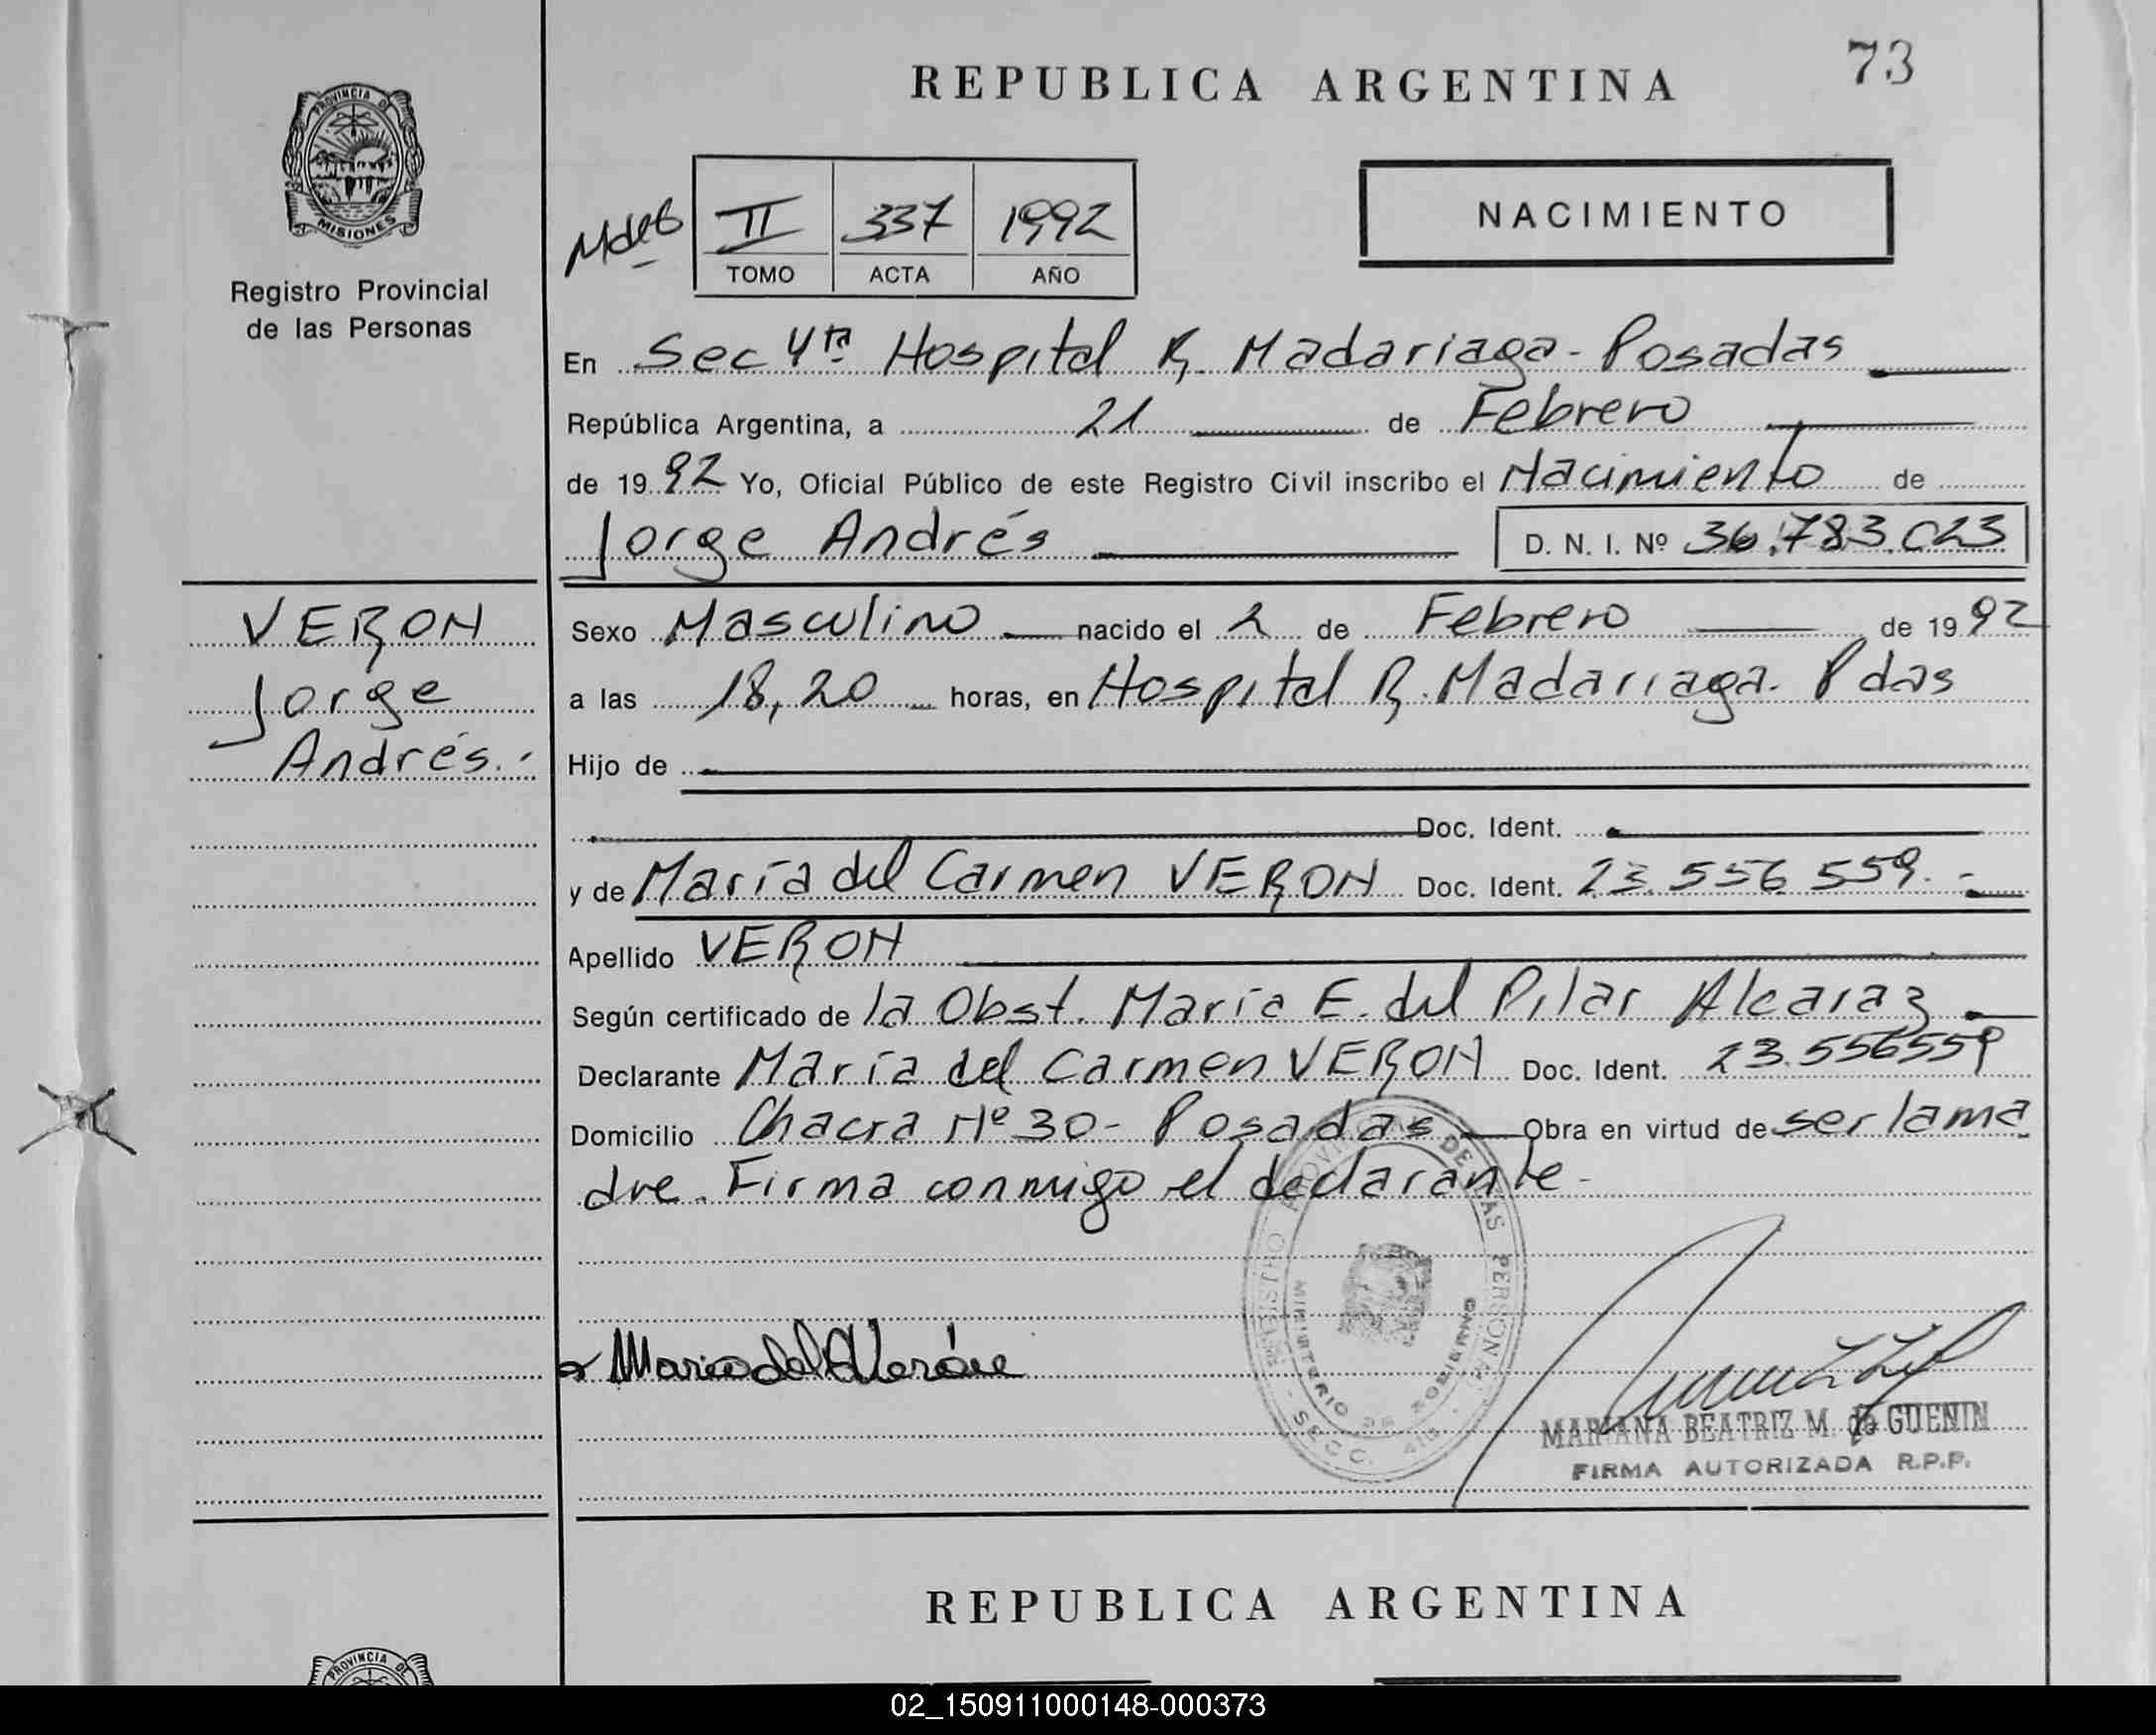 73
REPUBLICA ARGENTINA
PROVINCIA DE
MISIONES
Registro Provincial
de las Personas
II 337 1992
TOMO ACTA AÑO
NACIMIENTO
En Sec 4ta Hospital R. Madariaga - Posadas
República Argentina, a 21 de Febrero
de 1992 Yo, Oficial Público de este Registro Civil inscribo el Nacimiento de
Jorge Andrés D. N. I. Nº 36.783.023
VERON
Jorge
Andrés.
Sexo Masculino nacido el 2 de Febrero de 1992
a las 18,20 horas, en Hospital R. Madariaga. Pdas
Hijo de
Doc. Ident.
y de María del Carmen VERON Doc. Ident. 23.556 559.-
Apellido VERON
Según certificado de la Obst. María E. del Pilar Alcaraz
Declarante María del Carmen VERON Doc. Ident. 23.556559
Domicilio Chacra Nº 30 - Posadas Obra en virtud de ser la ma
dre. Firma conmigo el declarante-
REGISTRO PROVINCIAL DE LAS PERSONAS
MINISTERIO DE GOBIERNO
SECC. 4ta
MARIANA BEATRIZ M. de GUENIN
FIRMA AUTORIZADA R.P.P.
REPUBLICA ARGENTINA
PROVINCIA DE
02_150911000148-000373